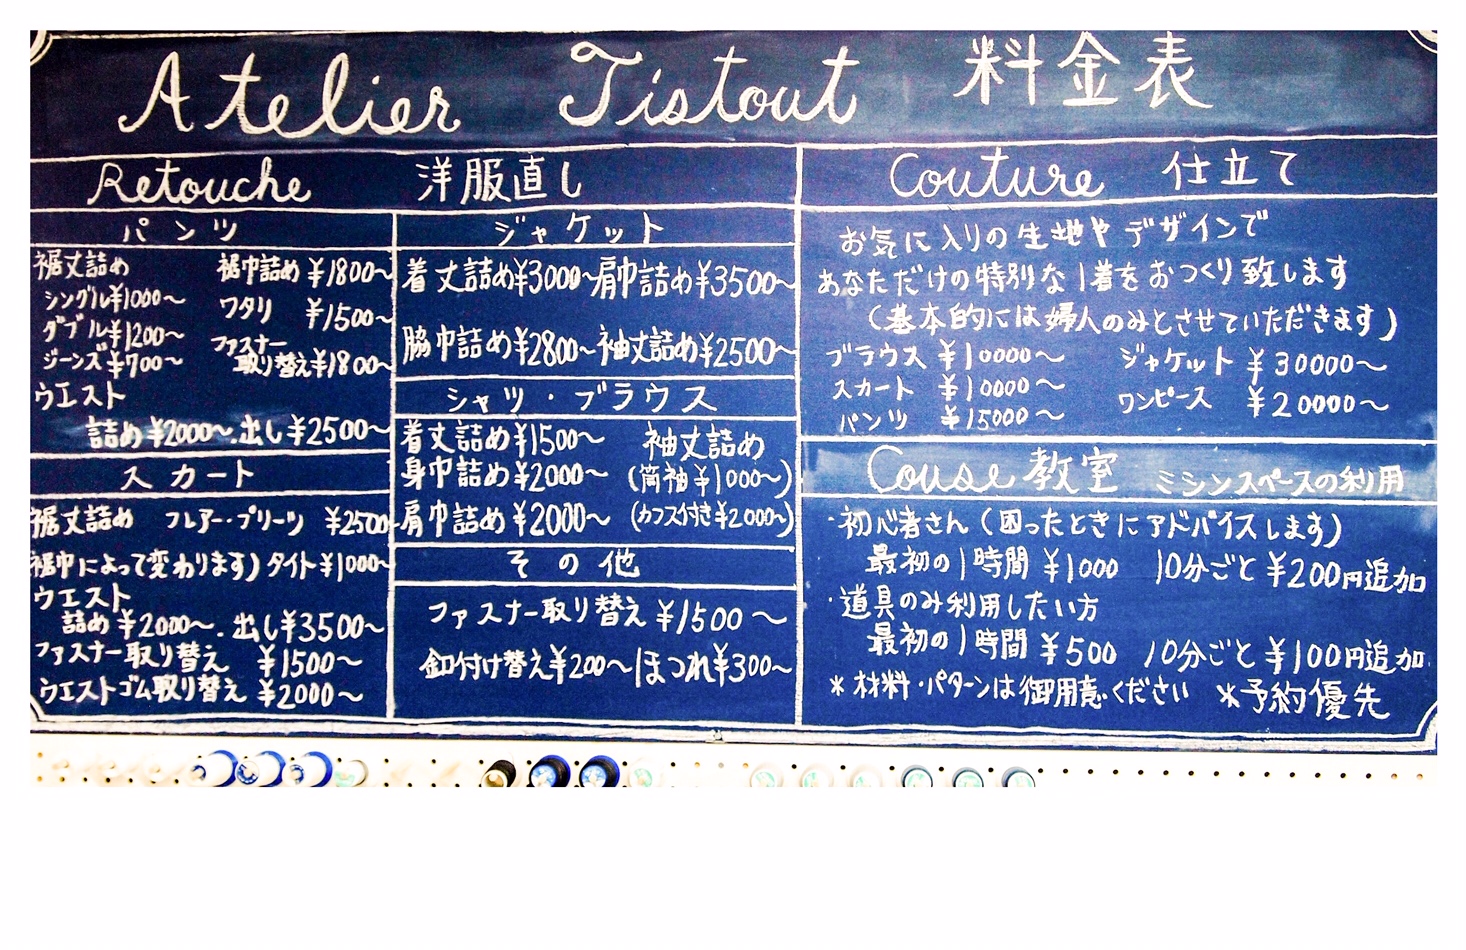 Atelier Tistout 料金表
Retouche 洋服直し
パンツ
裾丈詰め 裾巾詰め ¥1800〜
シングル¥1000〜 ワタリ ¥1500〜
ダブル¥1200〜 ファスナー
ジーンズ¥700〜 取り替え¥1800〜
ウエスト
詰め¥2000〜.出し¥2500〜
スカート
裾丈詰め フレアー・プリーツ ¥2500
裾巾によって変わります) タイト¥1000〜
ウエスト
詰め¥2000〜.出し¥3500〜
ファスナー取り替え ¥1500〜
ウエストゴム取り替え ¥2000〜
ジャケット
着丈詰め¥3000〜肩巾詰め¥3500〜
脇巾詰め¥2800〜袖丈詰め¥2500〜
シャツ・ブラウス
着丈詰め¥1500〜 袖丈詰め
身巾詰め¥2000〜 (筒袖¥1000〜)
肩巾詰め¥2000〜 (カフス付き¥2000〜)
その他
ファスナー取り替え ¥1500〜
釦付け替え¥200〜ほつれ¥300〜
Couture 仕立て
お気に入りの生地やデザインで
あなただけの特別な1着をおつくり致します
(基本的には婦人のみとさせていただきます)
ブラウス ¥10000〜 ジャケット ¥30000〜
スカート ¥10000〜 ワンピース ¥20000〜
パンツ ¥15000〜
Couse 教室 ミシンスペースの利用
・初心者さん(困ったときにアドバイスします)
最初の1時間 ¥1000 10分ごと¥200円追加
・道具のみ利用したい方
最初の1時間 ¥500 10分ごと¥100円追加
*材料・パターンは御用意ください *予約優先